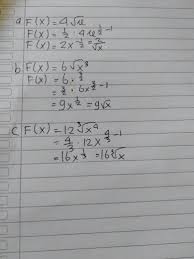 a F(x) = 4√x
F(x) = 1/2 · 4x^(1/2 - 1)
F(x) = 2x^(-1/2) = 2/√x
b F(x) = 6√x³
F(x) = 6 · 3/2
= 3/2 · 6x^(3/2 - 1)
= 9x^(1/2) = 9√x
c F(x) = 12 ³√x⁴
= 4/3 · 12x^(4/3 - 1)
= 16x^(1/3) = 16 ³√x